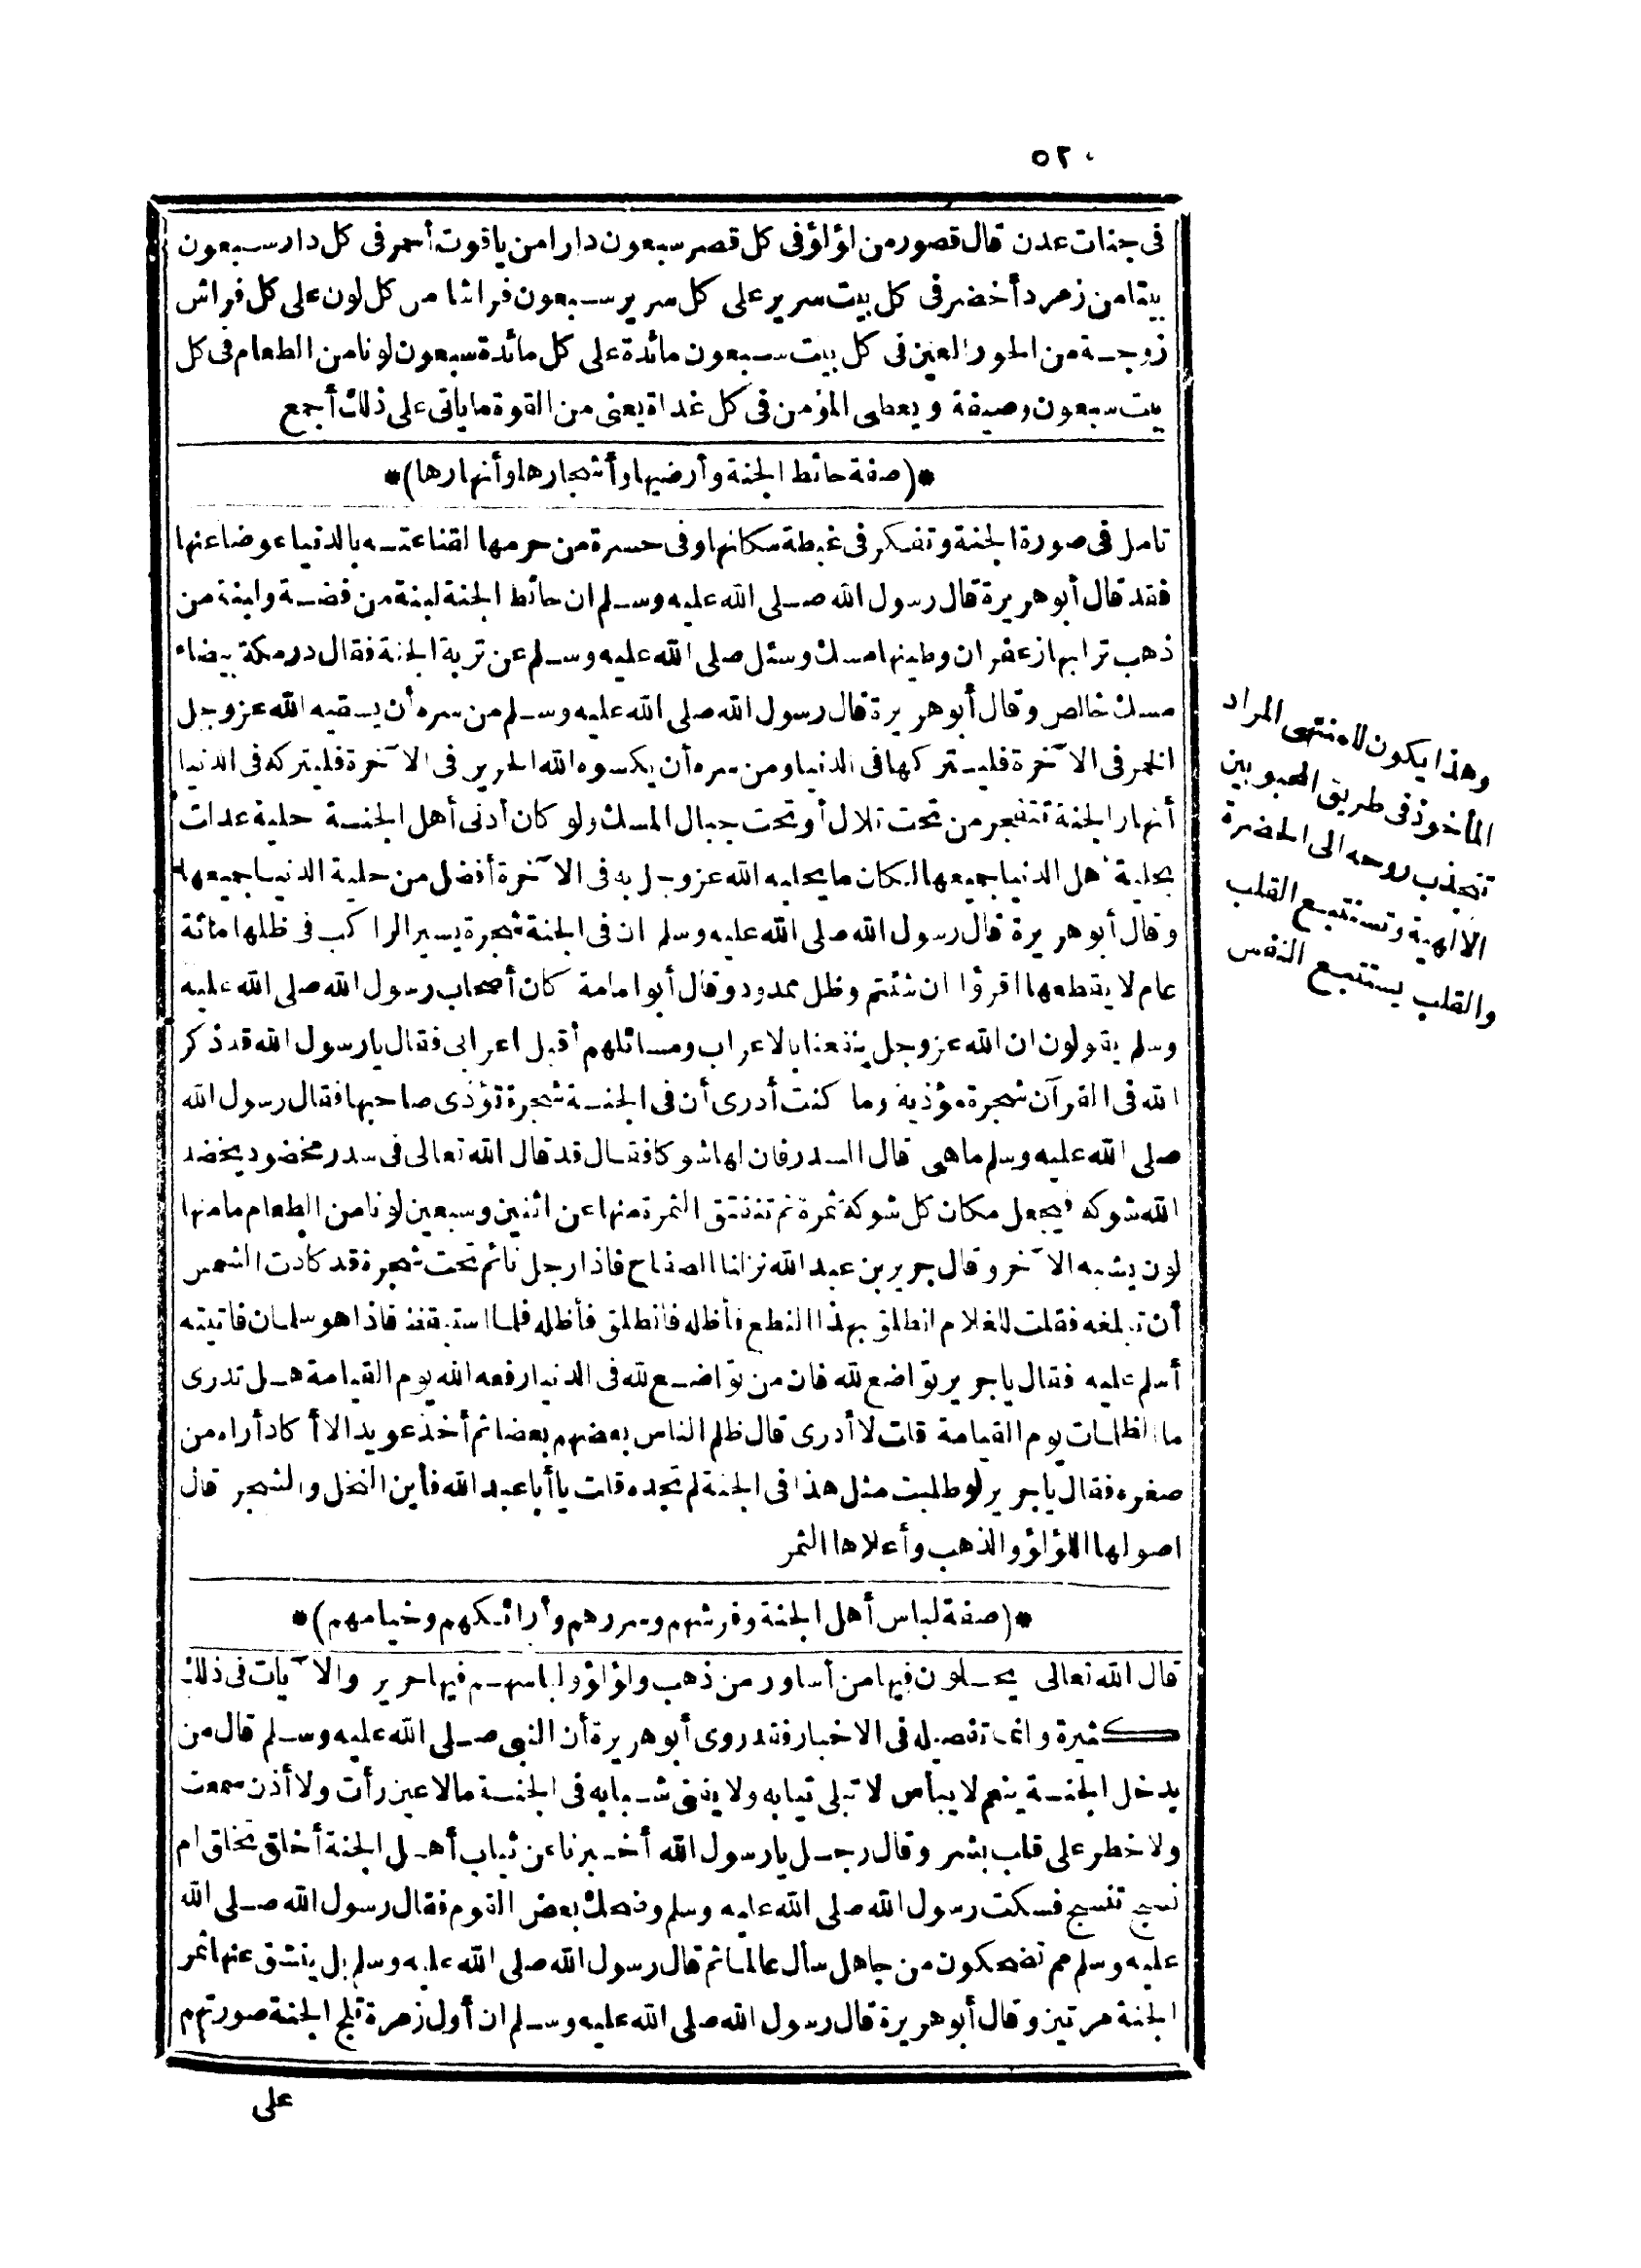 ٥٢٠
في جنات عدن قال قصور من لؤلؤ في كل قصر سبعون دارا من ياقوت أحمر في كل دار سبعون
بيتا من زمرد أخضر في كل بيت سرير على كل سرير سبعون فراشا من كل لون على كل فراش
زوجة من الحور العين في كل بيت سبعون مائدة على كل مائدة سبعون لونا من الطعام في كل
بيت سبعون وصيفة ويعطى المؤمن في كل غداة يعنى من القوة ما يأتى على ذلك أجمع
*(صفة حائط الجنة وأرضيها وأشجارها وأنهارها)*
تأمل فى صورة الجنة وتفكر فى غبطة سكانها وفى حسرة من حرمها لقناعته بالدنيا عوضا عنها
فقد قال أبو هريرة قال رسول الله صلى الله عليه وسلم ان حائط الجنة لبنة من فضة ولبنة من
ذهب ترابها زعفران وطينها مسك وسئل صلى الله عليه وسلم عن تربة الجنة فقال درمكة بيضاء
مسك خالص وقال أبو هريرة قال رسول الله صلى الله عليه وسلم من سره أن يسقيه الله عز وجل
الخمر فى الآخرة فليتركها فى الدنيا ومن سره أن يكسوه الله الحرير فى الآخرة فليتركه فى الدنيا
أنهار الجنة تتفجر من تحت تلال أو تحت جبال المسك ولو كان أدنى أهل الجنة حلية عدلت
بحلية أهل الدنيا جميعها لكان ما يحليه الله عز وجل به فى الآخرة أفضل من حلية الدنيا جميعها
وقال أبو هريرة قال رسول الله صلى الله عليه وسلم ان فى الجنة شجرة يسير الراكب فى ظلها مائة
عام لا يقطعها اقرؤا ان شئتم وظل ممدود وقال أبو امامة كان أصحاب رسول الله صلى الله عليه
وسلم يقولون ان الله عز وجل ينفعنا بالاعراب ومسائلهم أقبل اعرابى فقال يا رسول الله قد ذكر
الله فى القرآن شجرة مؤذية وما كنت أدرى أن فى الجنة شجرة تؤذى صاحبها فقال رسول الله
صلى الله عليه وسلم ما هى قال السدر فان لها شوكا فقال قد قال الله تعالى فى سدر مخضود يخضد
الله شوكه فيجعل مكان كل شوكة ثمرة ثم تنفتق الثمرة منها عن اثنين وسبعين لونا من الطعام ما منها
لون يشبه الآخر وقال جرير بن عبد الله نزلنا الصفاح فاذا رجل نائم تحت شجرة قد كادت الشمس
أن تبلغه فقلت للغلام انطلق بهذا النطع فأظله فانطلق فأظله فلما استيقظ فاذا هو سلمان فأتيته
أسلم عليه فقال يا جرير تواضع لله فان من تواضع لله فى الدنيا رفعه الله يوم القيامة هل تدرى
ما الظلمات يوم القيامة قلت لا أدرى قال ظلم الناس بعضهم بعضا ثم أخذ عويدا لا أكاد أراه من
صغره فقال يا جرير لو طلبت مثل هذا فى الجنة لم تجده قلت يا أبا عبد الله فأين النخل والشجر قال
اصولها اللؤلؤ والذهب وأعلاها الثمر
*(صفة لباس أهل الجنة وفرشهم وسررهم وأرائكهم وخيامهم)*
قال الله تعالى يحلون فيها من أساور من ذهب ولؤلؤ ولباسهم فيها حرير والآيات فى ذلك
كثيرة وانما تفصيله فى الاخبار فقد روى أبو هريرة أن النبى صلى الله عليه وسلم قال من
يدخل الجنة ينعم لا يبأس لا تبلى ثيابه ولا يفنى شبابه فى الجنة مالا عين رأت ولا أذن سمعت
ولا خطر على قلب بشر وقال رجل يا رسول الله أخبرنا عن ثياب أهل الجنة أخلق تخلق ام
نسج تنسج فسكت رسول الله صلى الله عليه وسلم وضحك بعض القوم فقال رسول الله صلى الله
عليه وسلم مم تضحكون من جاهل سأل عالما ثم قال رسول الله صلى الله عليه وسلم بل ينشق عنها ثمر
الجنة مرتين وقال أبو هريرة قال رسول الله صلى الله عليه وسلم ان أول زمرة تلج الجنة صورتهم
على
وهذا يكون لاه منتهى المراد
المأخوذ فى طريق المحبوبين
تنجذب روحه الى الحضرة
الالهية وتستتبع القلب
والقلب يستتبع النفس